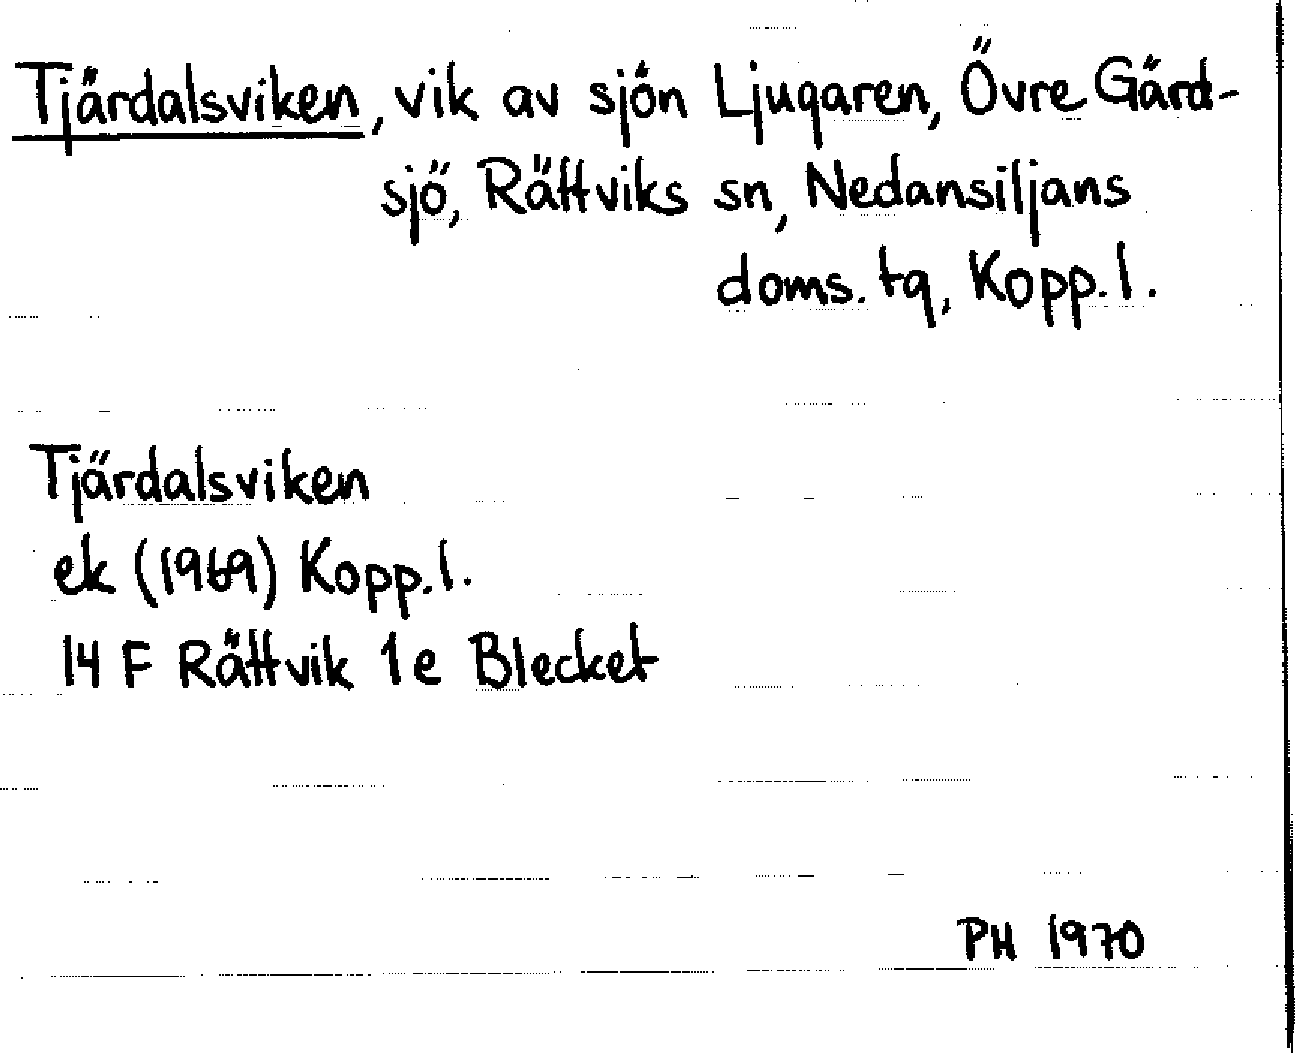 Tjärdalsviken, vik av sjön Ljugaren, Övre Gärd-
sjö, Rättviks sn, Nedansiljans
doms. tg, Kopp. l.
Tjärdalsviken
ek (1969) Kopp. l.
14 F Rättvik 1e Blecket
PH 1970